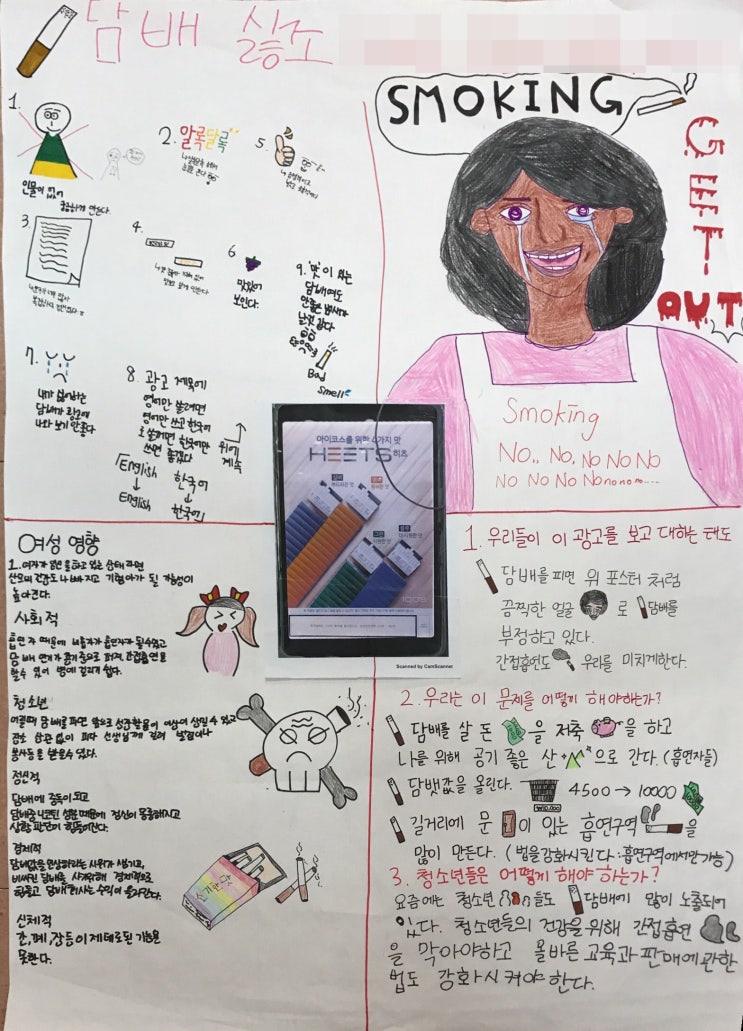 담배 싫조
SMOKING
GET
OUT
1.
인물이 없어
궁금하게 만든다.
2. 알록달록
3.
4.
5.
6
맛있어
보인다.
7.
내가 싫어하는
담배가 광고에
나와 보기 안좋다
8. 광고 제목에
영어만 쓸려면
영어만 쓰고 한국어
로 쓸꺼면 한국어만
쓰면 좋겠다
위에
계속
English 한국어
English 한국어
9. '맛'이 있는
담배여도
안좋은 냄새가
날것 같다
Bad
Smell
Smoking
No.. No. No No No
No No No No no no no....
아이코스를 위한 6가지 맛
HEETS 히츠
IQOS
Scanned by CamScanner
여성 영향
1. 여자가 임신을 하고 있는 상태라면
산모의 건강도 나빠지고 기형아가 될 가능성이
높아진다.
사회적
흡연자 때문에 비흡연자가 흡연자가 될수있고
담배 연기가 공기중으로 퍼져 간접흡연을
할수 있어 병에 걸리기 쉽다.
청소년
어릴때 담배를 피면 앞으로 성장활동에 이상이 생길 수 있고
장소 상관 없이 피다 선생님께 걸려 벌점이나
봉사등을 받을수있다.
정신적
담배에 중독이 되고
담배중 니코틴 성분 때문에 정신이 몽롱해지고
상황 판단이 힘들어진다.
경제적
담배값을 인상하라는 시위가 생기고,
비싸진 담배를 사기위해 경제적으로
힘들고 담배회사는 수익이 올라간다.
신체적
간, 폐, 장등이 제대로된 기능을
못한다.
신기한 맛
1. 우리들이 이 광고를 보고 대하는 태도
담배를 피면 위 포스터 처럼
끔찍한 얼굴로 담배를
부정하고 있다.
간접흡연도 우리를 미치게한다.
2. 우리는 이 문제를 어떻게 해야하는가?
담배를 살 돈을 저축을 하고
나를 위해 공기 좋은 산으로 간다. (흡연자들)
담뱃값을 올린다. 4500 → 10000
₩10,000
길거리에 문이 있는 흡연구역을
많이 만든다. (법을강화시킨다:흡연구역에서만가능)
3. 청소년들은 어떻게 해야 하는가?
요즘에는 청소년들도 담배에 많이 노출되어
있다. 청소년들의 건강을 위해 간접흡연
을 막아야하고 올바른 교육과 판매에 관한
법도 강화시켜야 한다.